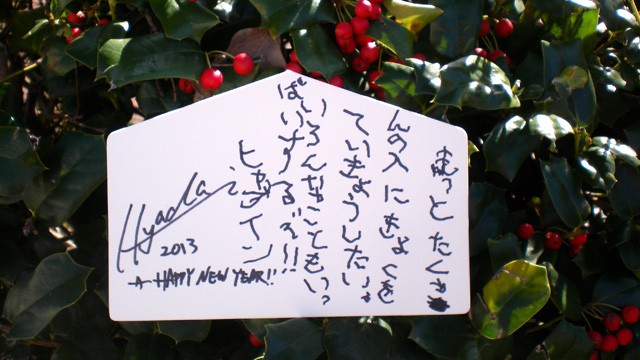 もっと たくさ
んの人にきょくを
ていきょうしたいよ
いろんなこともいっ
ぱいするぞ!!
ヒャダイン
Hyadain
2013
A HAPPY NEW YEAR!!